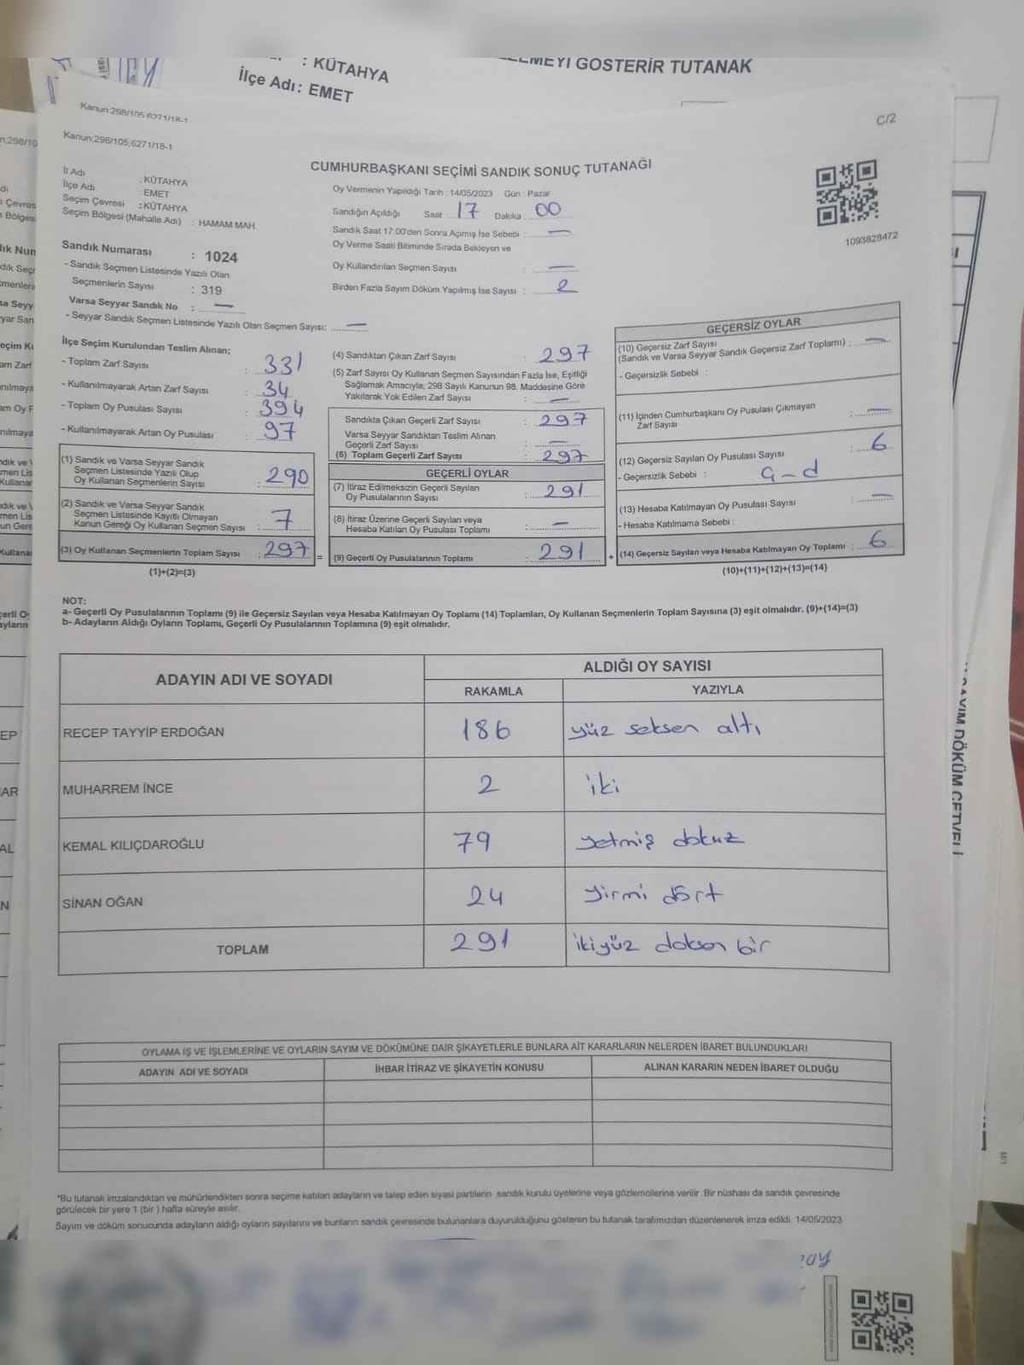 : KÜTAHYA
İlçe Adı: EMET
GÖSTERİR TUTANAK
Kanun:298/105,6271/18-1
C/2
Kanun:298/105,6271/18-1
CUMHURBAŞKANI SEÇİMİ SANDIK SONUÇ TUTANAĞI
İl Adı : KÜTAHYA
İlçe Adı : EMET
Seçim Çevresi : KÜTAHYA
Seçim Bölgesi (Mahalle Adı) : HAMAM MAH.
Oy Vermenin Yapıldığı Tarih : 14/05/2023 Gün : Pazar
Sandığın Açıldığı Saat : 17 Dakika : 00
Sandık Saat 17:00'den Sonra Açılmış İse Sebebi : —
Oy Verme Saati Bitiminde Sırada Bekleyen ve
Oy Kullandırılan Seçmen Sayısı : —
Birden Fazla Sayım Döküm Yapılmış İse Sayısı : 2
1093828472
Sandık Numarası : 1024
- Sandık Seçmen Listesinde Yazılı Olan
Seçmenlerin Sayısı : 319
Varsa Seyyar Sandık No : —
- Seyyar Sandık Seçmen Listesinde Yazılı Olan Seçmen Sayısı: —
İlçe Seçim Kurulundan Teslim Alınan;
- Toplam Zarf Sayısı : 331
- Kullanılmayarak Artan Zarf Sayısı : 34
- Toplam Oy Pusulası Sayısı : 394
- Kullanılmayarak Artan Oy Pusulası : 97
(1) Sandık ve Varsa Seyyar Sandık
Seçmen Listesinde Yazılı Olup
Oy Kullanan Seçmenlerin Sayısı : 290
(2) Sandık ve Varsa Seyyar Sandık
Seçmen Listesinde Kayıtlı Olmayan
Kanun Gereği Oy Kullanan Seçmen Sayısı : 7
(3) Oy Kullanan Seçmenlerin Toplam Sayısı : 297 =
(1)+(2)=(3)
(4) Sandıktan Çıkan Zarf Sayısı : 297
(5) Zarf Sayısı Oy Kullanan Seçmen Sayısından Fazla İse, Eşitliği
Sağlamak Amacıyla; 298 Sayılı Kanunun 98. Maddesine Göre
Yakılarak Yok Edilen Zarf Sayısı : —
Sandıkta Çıkan Geçerli Zarf Sayısı : 297
Varsa Seyyar Sandıktan Teslim Alınan
Geçerli Zarf Sayısı : —
(6) Toplam Geçerli Zarf Sayısı : 297
GEÇERLİ OYLAR
(7) İtiraz Edilmeksizin Geçerli Sayılan
Oy Pusulalarının Sayısı : 291
(8) İtiraz Üzerine Geçerli Sayılan veya
Hesaba Katılan Oy Pusulası Toplamı : —
(9) Geçerli Oy Pusulalarının Toplamı : 291 +
GEÇERSİZ OYLAR
(10) Geçersiz Zarf Sayısı
(Sandık ve Varsa Seyyar Sandık Geçersiz Zarf Toplamı) : —
- Geçersizlik Sebebi :
(11) İçinden Cumhurbaşkanı Oy Pusulası Çıkmayan
Zarf Sayısı : —
(12) Geçersiz Sayılan Oy Pusulası Sayısı : 6
- Geçersizlik Sebebi : a-d
(13) Hesaba Katılmayan Oy Pusulası Sayısı : —
- Hesaba Katılmama Sebebi :
(14) Geçersiz Sayılan veya Hesaba Katılmayan Oy Toplamı : 6
(10)+(11)+(12)+(13)=(14)
NOT:
a- Geçerli Oy Pusulalarının Toplamı (9) ile Geçersiz Sayılan veya Hesaba Katılmayan Oy Toplamı (14) Toplamları, Oy Kullanan Seçmenlerin Toplam Sayısına (3) eşit olmalıdır. (9)+(14)=(3)
b- Adayların Aldığı Oyların Toplamı, Geçerli Oy Pusulalarının Toplamına (9) eşit olmalıdır.
ADAYIN ADI VE SOYADI
ALDIĞI OY SAYISI
RAKAMLA YAZIYLA
RECEP TAYYİP ERDOĞAN 186 yüz seksen altı
MUHARREM İNCE 2 iki
KEMAL KILIÇDAROĞLU 79 yetmiş dokuz
SİNAN OĞAN 24 yirmi dört
TOPLAM 291 ikiyüz doksan bir
SAYIM DÖKÜM CETVELİ
OYLAMA İŞ VE İŞLEMLERİNE VE OYLARIN SAYIM VE DÖKÜMÜNE DAİR ŞİKAYETLERLE BUNLARA AİT KARARLARIN NELERDEN İBARET BULUNDUKLARI
ADAYIN ADI VE SOYADI İHBAR İTİRAZ VE ŞİKAYETİN KONUSU ALINAN KARARIN NEDEN İBARET OLDUĞU
*Bu tutanak imzalandıktan ve mühürlendikten sonra seçime katılan adayların ve talep eden siyasi partilerin sandık kurulu üyelerine veya gözlemcilerine verilir. Bir nüshası da sandık çevresinde
görülecek bir yere 1 (bir ) hafta süreyle asılır.
Sayım ve döküm sonucunda adayların aldığı oyların sayılarını ve bunların sandık çevresinde bulunanlara duyurulduğunu gösteren bu tutanak tarafımızdan düzenlenerek imza edildi. 14/05/2023